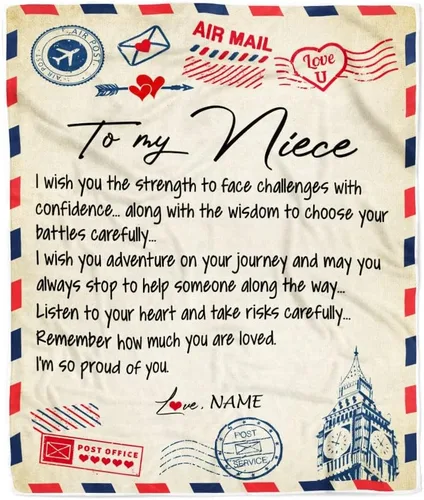 AIR POST
AIR POST
AIR MAIL
Love
U
To my Niece
I wish you the strength to face challenges with
confidence... along with the wisdom to choose your
battles carefully...
I wish you adventure on your journey and may you
always stop to help someone along the way...
Listen to your heart and take risks carefully...
Remember how much you are loved.
I'm so proud of you.
Love, NAME
POST OFFICE
POST
SERVICE